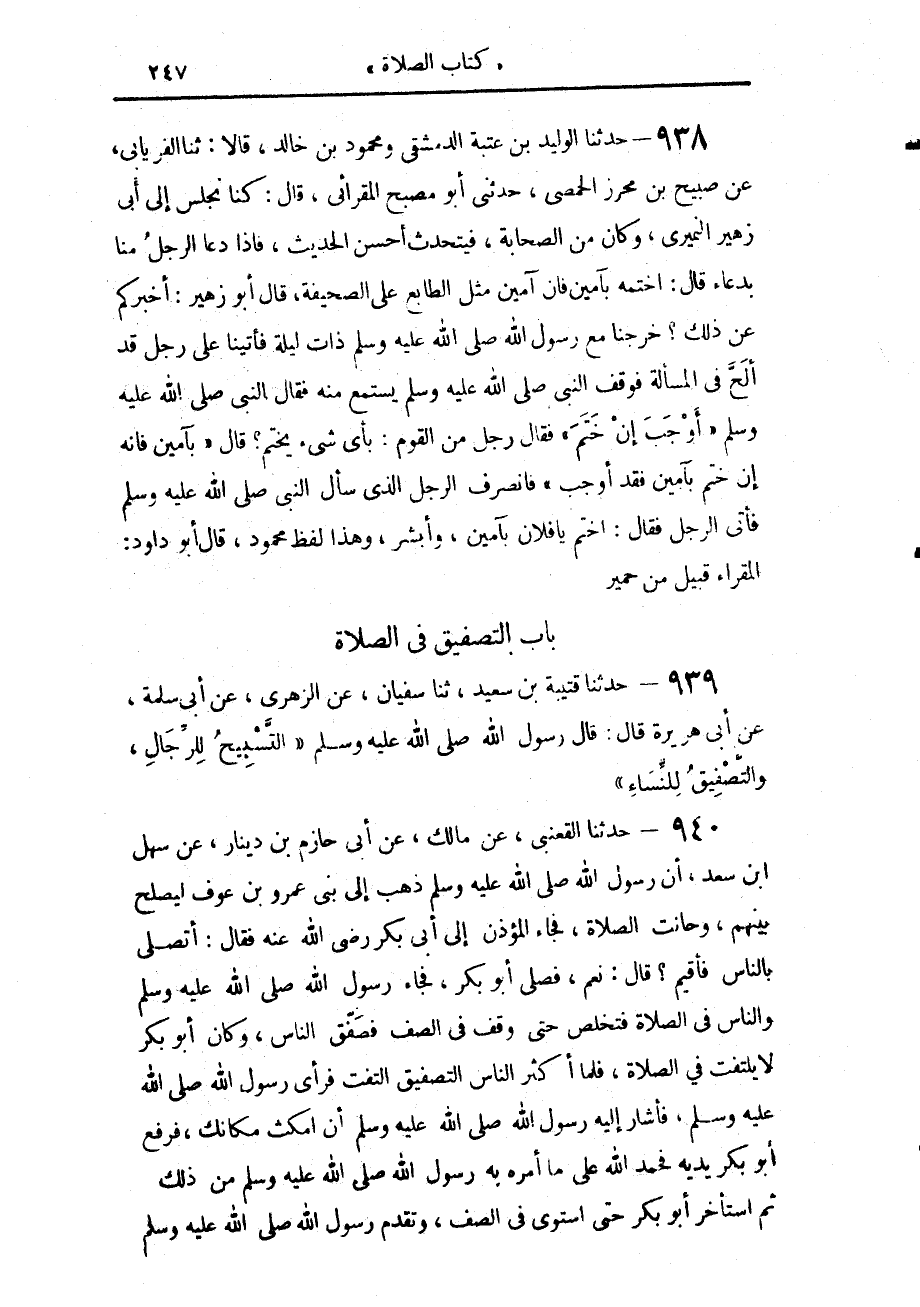 « كتاب الصلاة » ٢٤٧
٩٣٨ — حدثنا الوليد بن عتبة الدمشقى ومحمود بن خالد ، قالا : ثنا الفريابى،
عن صبيح بن محرز الحمصى ، حدثنى أبو مصبح المقرائى ، قال : كنا نجلس إلى أبى
زهير النميرى ، وكان من الصحابة ، فيتحدث أحسن الحديث ، فاذا دعا الرجلُ منا
بدعاء قال : اختمه بآمين فان آمين مثل الطابع على الصحيفة، قال أبو زهير : أخبركم
عن ذلك ؟ خرجنا مع رسول الله صلى الله عليه وسلم ذات ليلة فأتينا على رجل قد
ألَحَّ فى المسألة فوقف النبى صلى الله عليه وسلم يستمع منه فقال النبى صلى الله عليه
وسلم « أَوْجَبَ إنْ خَتَمَ » فقال رجل من القوم : بأى شىء يختم؟ قال « بآمين فانه
إن ختم بآمين فقد أوجب » فانصرف الرجل الذى سأل النبى صلى الله عليه وسلم
فأتى الرجل فقال : اختم يافلان بآمين ، وأبشر ، وهذا لفظ محمود ، قال أبو داود:
المقراء قبيل من حمير
باب التصفيق فى الصلاة
٩٣٩ — حدثنا قتيبة بن سعيد ، ثنا سفيان ، عن الزهرى ، عن أبى سلمة ،
عن أبى هريرة قال : قال رسول الله صلى الله عليه وسلم « التَّسْبِيحُ لِلرِّجَالِ ،
والتَّصْفِيقُ لِلنِّسَاءِ »
٩٤٠ — حدثنا القعنبى ، عن مالك ، عن أبى حازم بن دينار ، عن سهل
ابن سعد ، أن رسول الله صلى الله عليه وسلم ذهب إلى بنى عمرو بن عوف ليصلح
بينهم ، وحانت الصلاة ، فجاء المؤذن إلى أبى بكر رضى الله عنه فقال : أتصلى
بالناس فأقيم ؟ قال : نعم ، فصلى أبو بكر ، فجاء رسول الله صلى الله عليه وسلم
والناس فى الصلاة فتخلص حتى وقف فى الصف فصَفّق الناس ، وكان أبو بكر
لايلتفت في الصلاة ، فلما أكثر الناس التصفيق التفت فرأى رسول الله صلى الله
عليه وسلم ، فأشار إليه رسول الله صلى الله عليه وسلم أن امكث مكانك ، فرفع
أبو بكر يديه فحمد الله على ما أمره به رسول الله صلى الله عليه وسلم من ذلك
ثم استأخر أبو بكر حتى استوى فى الصف ، وتقدم رسول الله صلى الله عليه وسلم